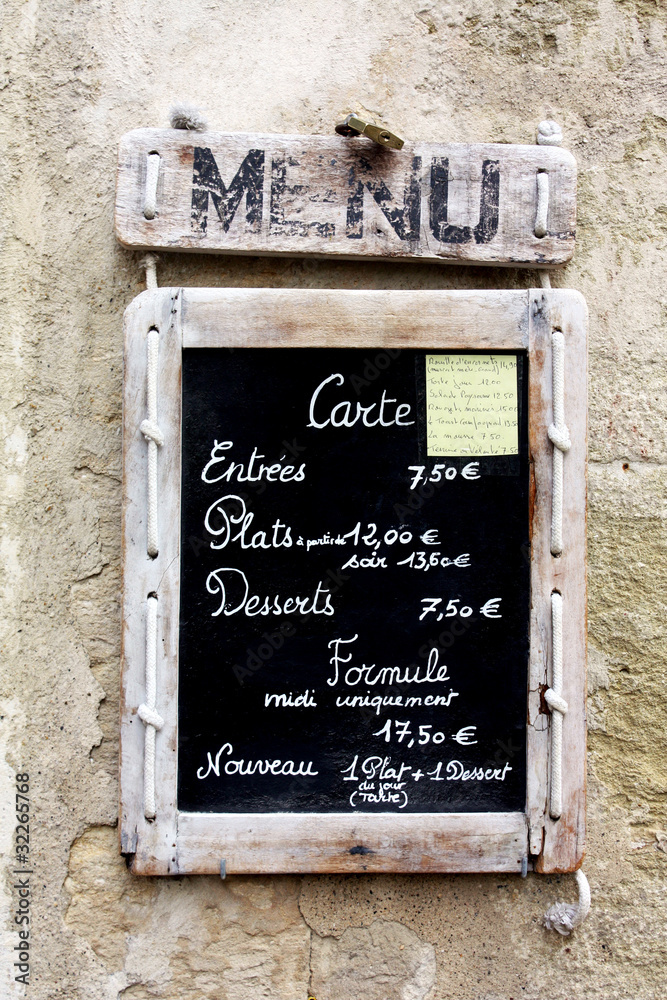 MENU
Carte
Entrées 7,50 €
Plats à partir de 12,00 €
soir 13,60 €
Desserts 7,50 €
Formule
midi uniquement
17,50 €
Nouveau 1 Plat + 1 Dessert
du jour
(Tarte)
14,90
jour 12.00
Salade Paysanne 12.50
15.00
13.50
La mousse 7.50
Terrine 7.50
Adobe Stock | #32265768